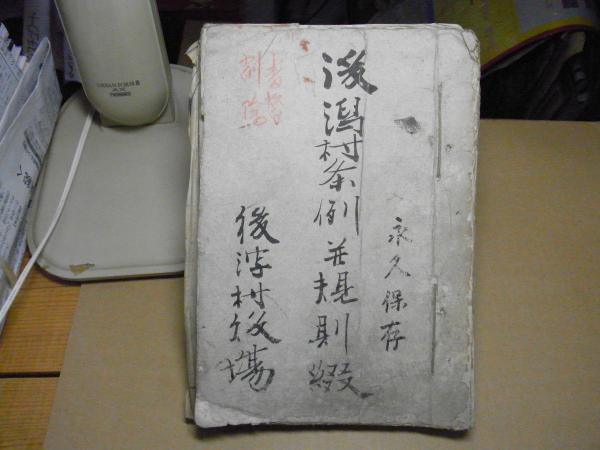 永久保存
後潟村条例並規則綴
後潟村役場